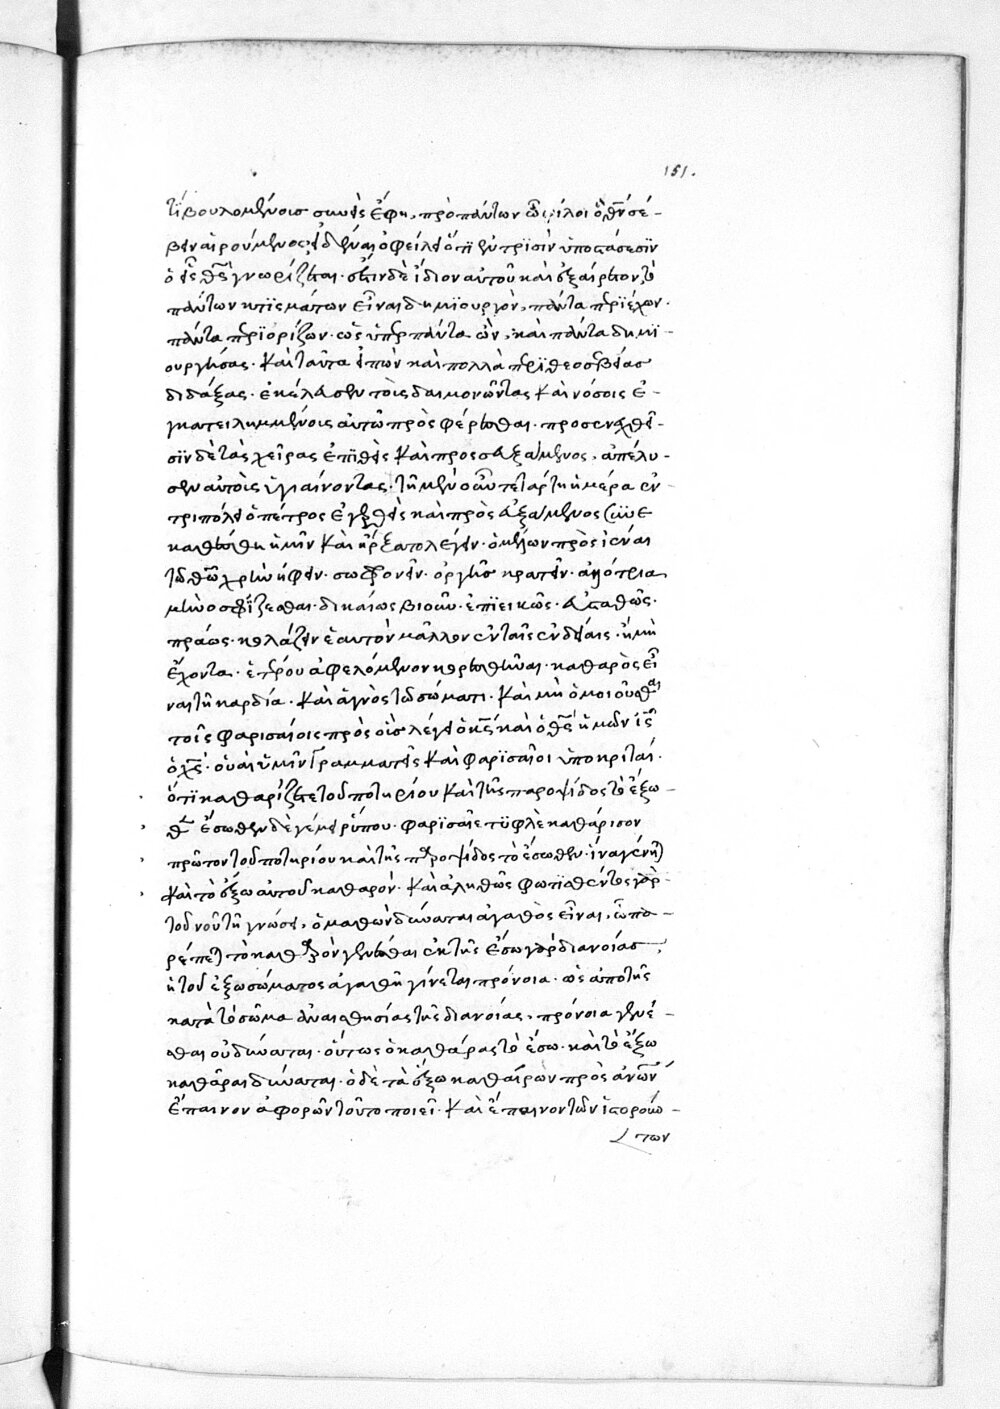 151.
τί βουλομένοις συνεὶς ἔφη· πρὸ πάντων ὦ φίλοι ὁ θν σέ-
βειν αἱρούμενος εἰδέναι ὀφείλει ὅτι ἐν τρισὶν ὑποστάσεσιν
ὁ εἷς θς γνωρίζεται· ἔστιν δὲ ἴδιον αὐτοῦ καὶ ἐξαίρετον τὸ
πάντων κτισμάτων εἶναι δημιουργὸν, πάντα περιέχων·
πάντα περιορίζων· ὡς ὑπὲρ πάντα ὢν, καὶ πάντα δημι-
ουργήσας· καὶ ταῦτα εἰπὼν καὶ πολλὰ περὶ θεοσεβείας
διδάξας· ἐκέλευσεν τοὺς δαιμονῶντας καὶ νόσοις ἐ-
γκατειλημμένοις αὐτῶ προσφέρεσθαι· προσενεχθεῖ-
σιν δὲ τὰς χεῖρας ἐπιθεὶς καὶ προσευξάμενος, ἀπέλυ-
σεν αὐτοὺς ὑγιαίνοντας· τῆ μὲν οὖν τετάρτη ἡμέρα ἐν
τριπόλει ὁ πέτρος ἐγερθεὶς καὶ προσευξάμενος συνε
καθέσθη ἡμῖν καὶ ἤρξατο λέγειν· ὁ μέλλων προσιέναι
τῶ θῶ χρὴ νήφειν· σωφρονεῖν· ὀργῆς κρατεῖν· ἀλλότρια
μὴ νοσφίζεσθαι· δικαίως βιοῦν· ἐπιεικῶς· εὐσταθῶς·
πράως· κολάζειν ἑαυτὸν μᾶλλον ἐν ταῖς ἐνδείαις· ἢ μὴ
ἔχοντα· ἑτέρου ἀφελόμενον κορεσθῆναι· καθαρὸς εἶ
ναι τῆ καρδία· καὶ ἁγνὸς τῶ σώματι· καὶ μὴ ὁμοιοῦσθαι
τοῖς φαρισαίοις πρὸς οὓς λέγει ὁ κς καὶ ὁ θς ἡμῶν ις
ὁ χς· οὐαὶ ὑμῖν γραμματεῖς καὶ φαρισαῖοι ὑποκριταί·
ὅτι καθαρίζετε τοῦ ποτηρίου καὶ τῆς παροψίδος τὸ ἔξω-
θεν ἔσωθεν δὲ γέμει ῥύπου· φαρισαῖε τυφλὲ καθάρισον
πρῶτον τοῦ ποτηρίου καὶ τῆς παροψίδος τὸ ἔσωθεν· ἵνα γένηται
καὶ τὸ ἔξω αὐτοῦ καθαρόν· καὶ ἀληθῶς φωτισθέντος γὰρ
τοῦ νοῦ τῆ γνώσει, ὁ μαθὼν δύναται ἀγαθὸς εἶναι, ὧ πα-
ρέπεται τὸ καθαρὸν γενέσθαι ἐκ τῆς ἔσω γὰρ διανοίας,
ἡ τοῦ ἔξω σώματος ἀγαθὴ γίνεται πρόνοια· ὡς ἀπὸ τῆς
κατὰ τὸ σῶμα ἀναισθησίας τῆς διανοίας, πρόνοια γενέ-
σθαι οὐ δύναται· οὕτως ὁ καθάρας τὸ ἔσω· καὶ τὸ ἔξω
καθᾶραι δύναται· ὁ δὲ τὰ ἔξω καθαίρων πρὸς ἀνων
ἔπαινον ἀφορῶν τοῦτο ποιεῖ· καὶ ἔπαινον τῶν ἱστορού-
των